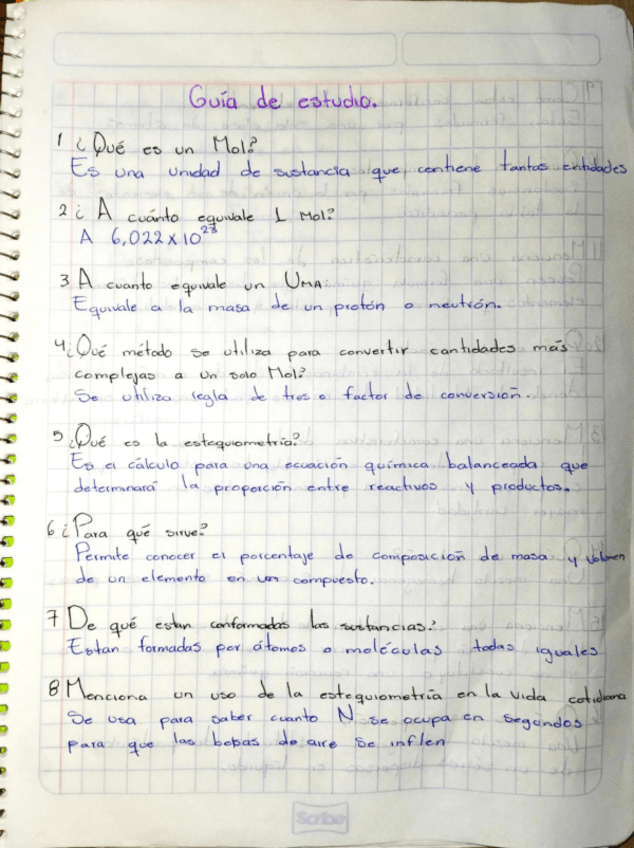 Guía de estudio.
1 ¿Qué es un Mol?
Es una unidad de sustancia que contiene tantas entidades
2 ¿A cuánto equivale 1 Mol?
A 6,022 x 10²³
3 A cuanto equivale un UMA:
Equivale a la masa de un protón o neutrón.
4 ¿Qué método se utiliza para convertir cantidades más
complejas a un solo Mol?
Se utiliza regla de tres o factor de conversión.
5 ¿Qué es la estequiometría?
Es el cálculo para una ecuación química balanceada que
determinará la proporción entre reactivos y productos.
6 ¿Para qué sirve?
Permite conocer el porcentaje de composición de masa y volumen
de un elemento en un compuesto.
7 De qué estan conformadas las sustancias?
Estan formadas por átomos o moléculas todas iguales
8 Menciona un uso de la estequiometría en la vida cotidiana
Se usa para saber cuanto N se ocupa en segundos
para que las bobas de aire se inflen
Scribe